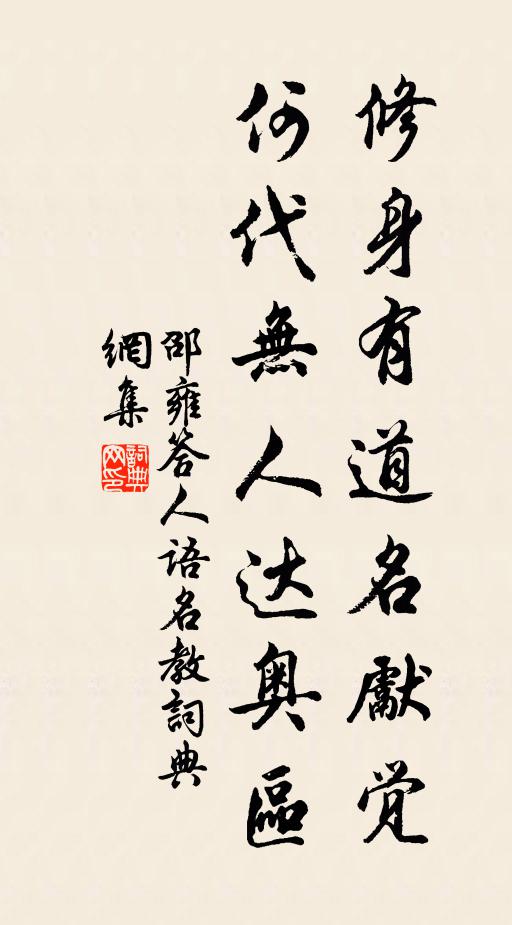 修身有道名獻觉
何代無人达奥區
邵雍答人語名教詞典
網集
詞典
网印